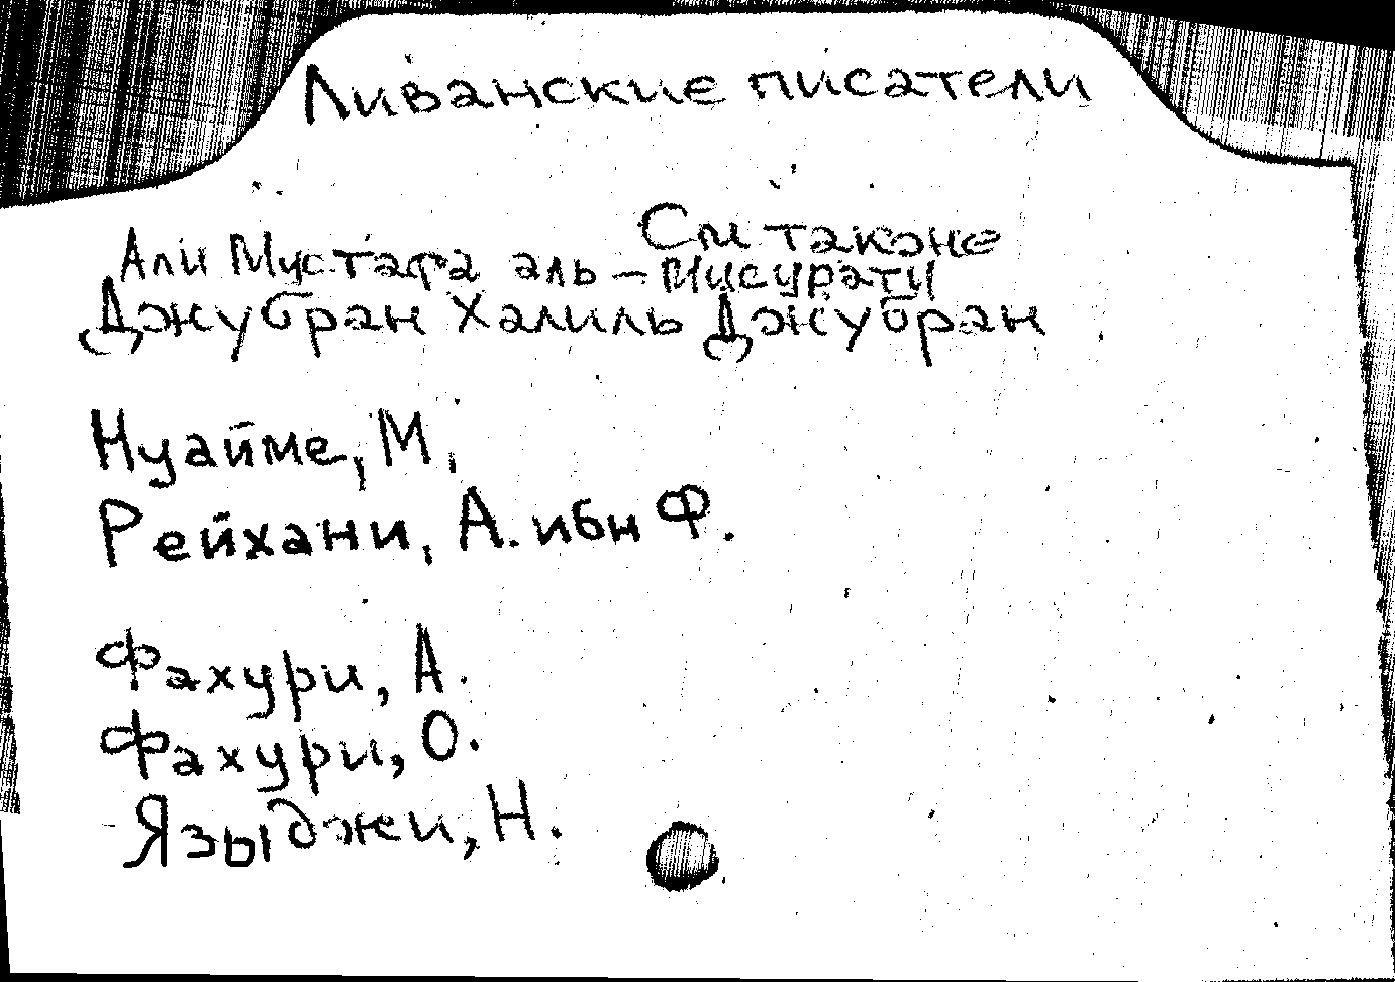 Ливанские писатели
См также
Али Мустафа аль-Мисурати
Джубран Халиль Джубран
Нуайме, М.
Рейхани, А. ибн Ф.
Фахури, А.
Фахури, О.
Языджи, Н.